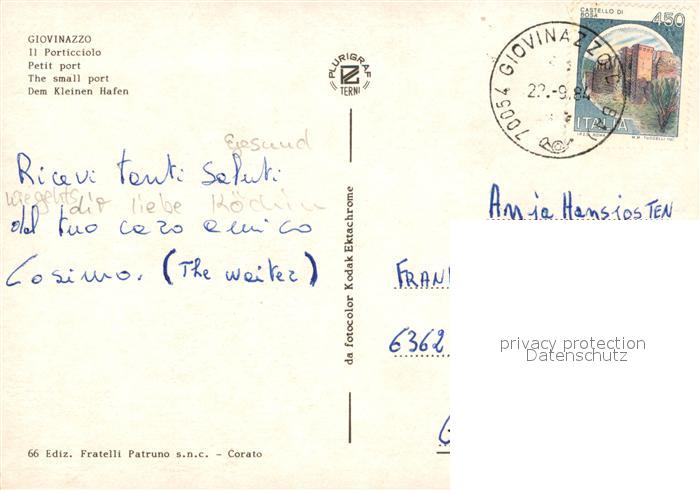 GIOVINAZZO
Il Porticciolo
Petit port
The small port
Dem Kleinen Hafen
PLURIGRAF
TERNI
70054 GIOVINAZZO
22.-9.84
CASTELLO DI
ROSA
450
ITALIA
gesund
Ricevi tanti saluti
wie gehts dir liebe Köchin
dal tuo caro amico
Cosimo. (The waiter)
da fotocolor Kodak Ektachrome
Anja Hansjosten
FRAN
6362
privacy protection
Datenschutz
66 Ediz. Fratelli Patruno s.n.c. - Corato